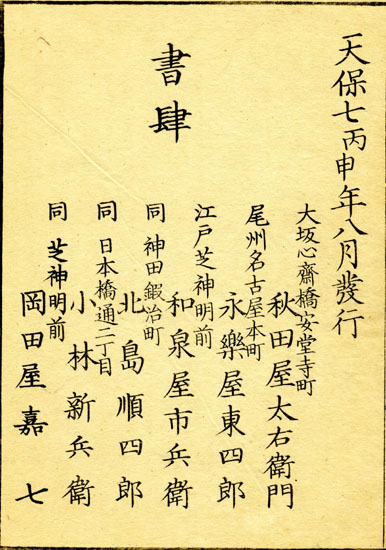 天保七丙申年八月發行
書肆
大坂心齋橋安堂寺町
秋田屋太右衛門
尾州名古屋本町
永樂屋東四郎
江戸芝神明前
和泉屋市兵衛
同 神田鍜冶町
北島順四郎
同 日本橋通二丁目
小林新兵衛
同 芝神明前
岡田屋嘉七